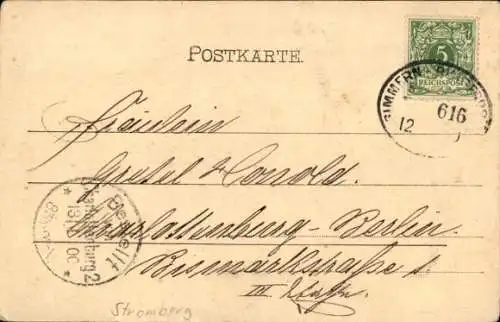 POSTKARTE.
5
REICHSPOST
SIMMERN
616
12
Fräulein
Gretel
Charlottenburg-Berlin.
Bismarkstraße 1.
III
Bestellt
Charlottenburg 2
Stromberg